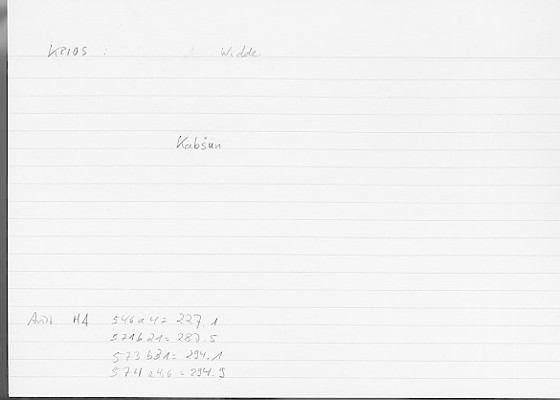 KRIOS : Widde
Kabšun
Arist HA 546a4 = 227.1
571b21 = 287.5
573b31 = 294.1
574a4,6 = 294.9